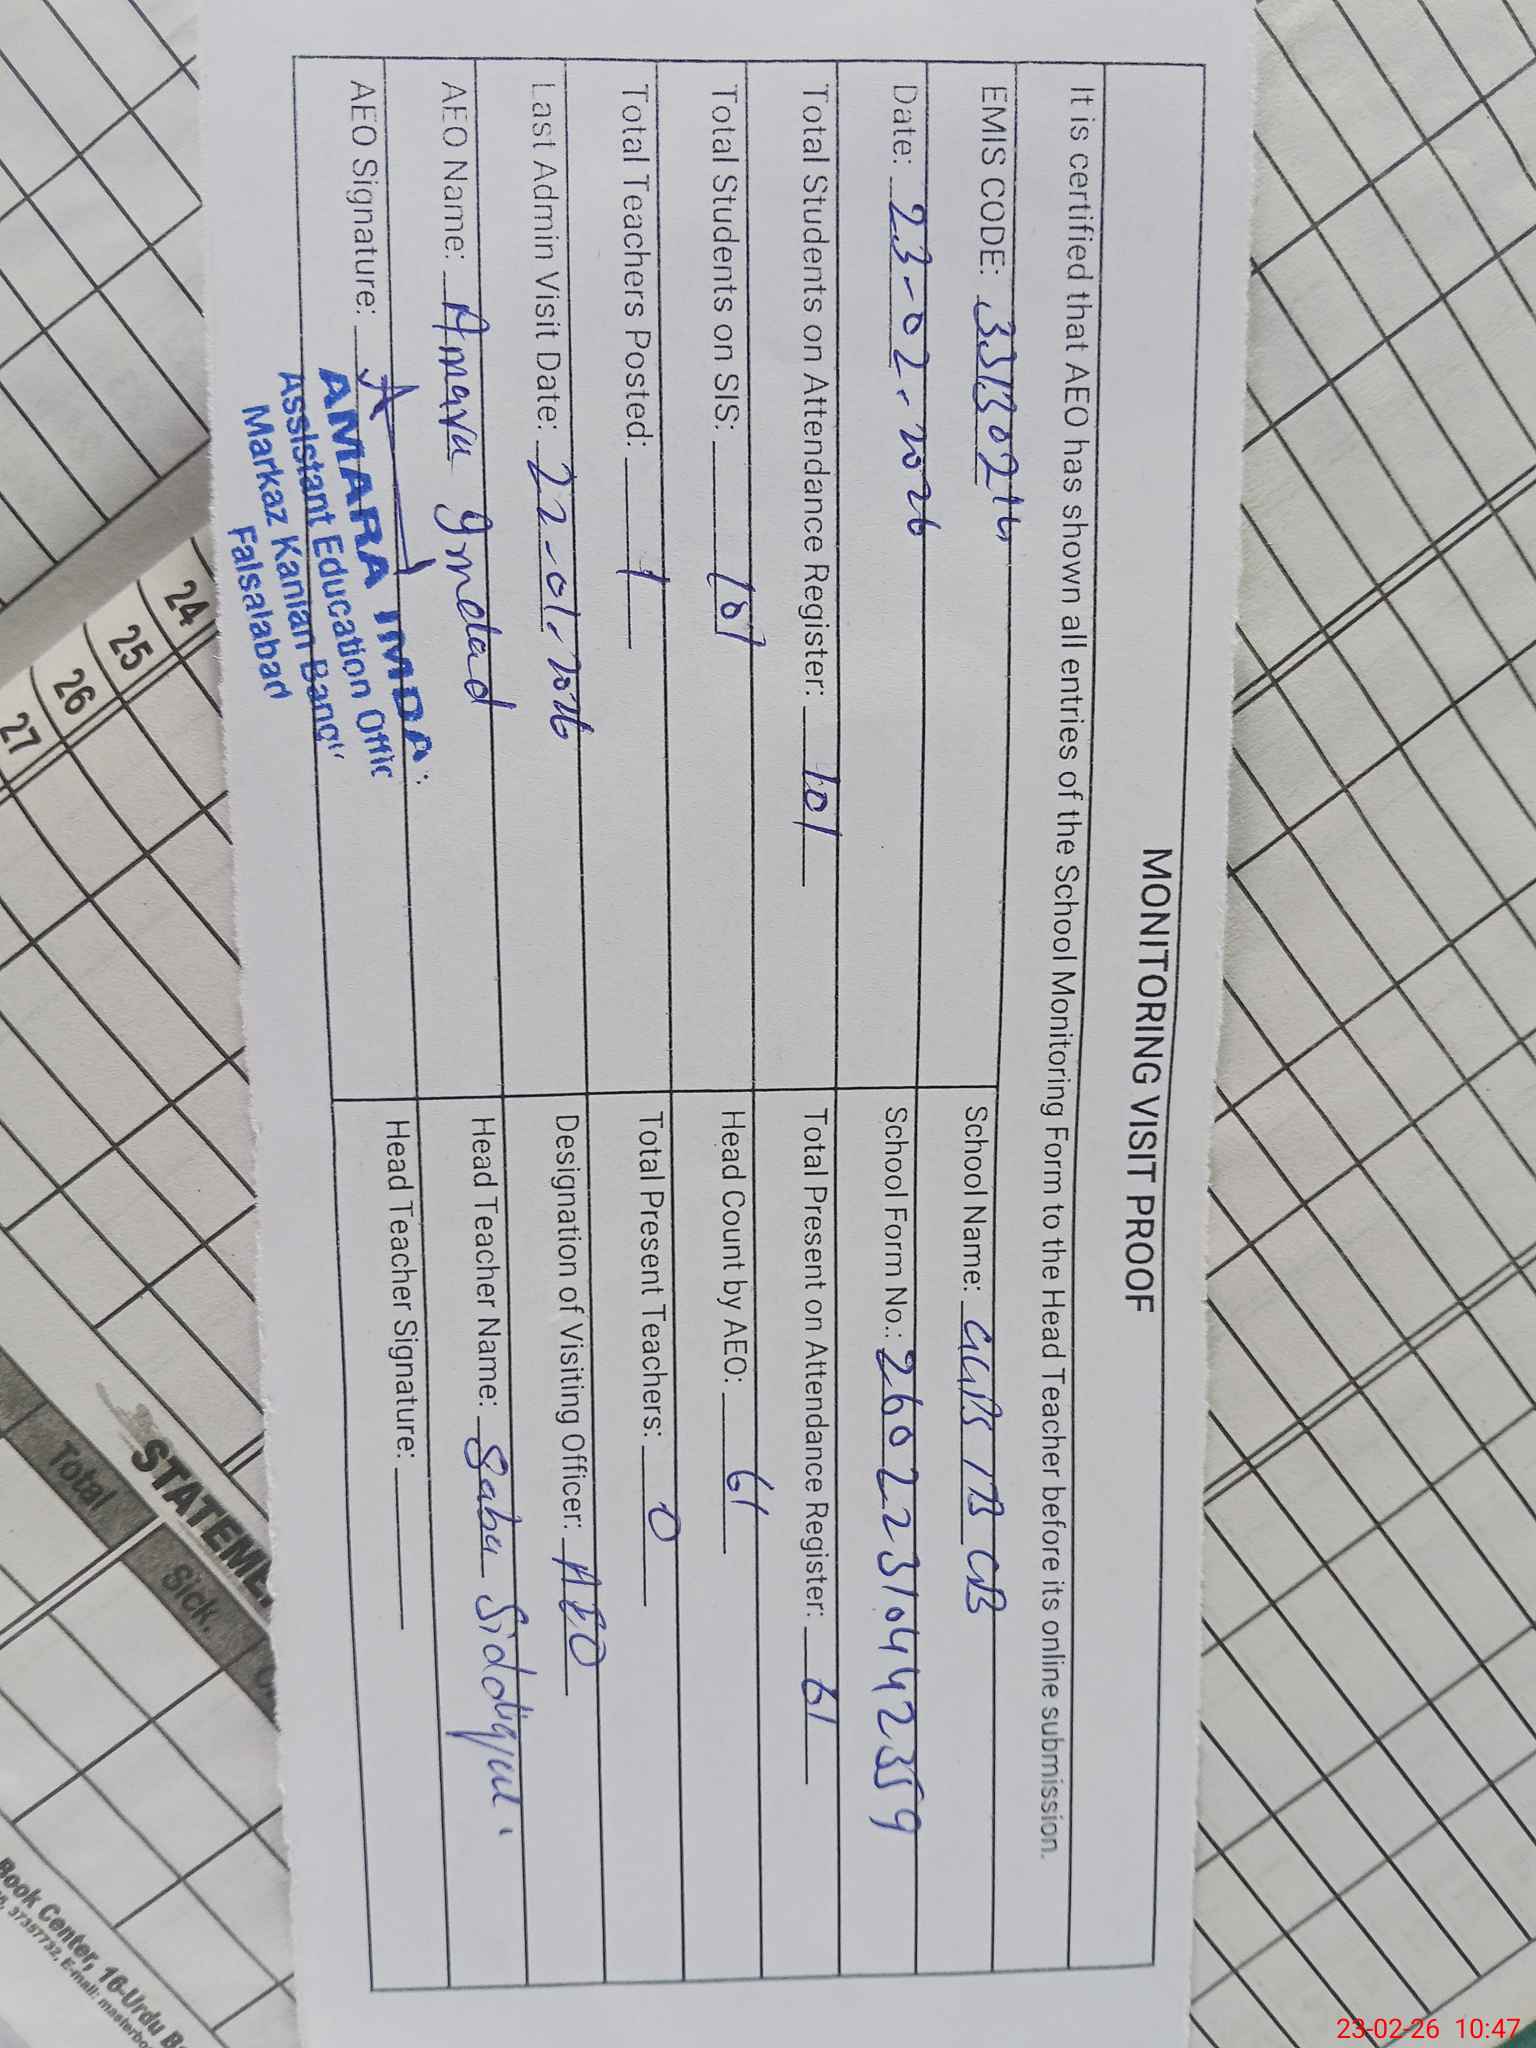 MONITORING VISIT PROOF
It is certified that AEO has shown all entries of the School Monitoring Form to the Head Teacher before its online submission.
EMIS CODE: School Name:
Date: 23-02-2026 School Form No.: 260223104442359
Total Students on Attendance Register: 101 Total Present on Attendance Register: 61
Total Students on SIS: 101 Head Count by AEO: 61
Total Teachers Posted: 1 Total Present Teachers: 0
Last Admin Visit Date: 22-01-2026 Designation of Visiting Officer: AEO
AEO Name: Amara Imdad Head Teacher Name: Saba
AEO Signature: Head Teacher Signature:
AMARA IMDA
Assistant Education Offic
Markaz Kanian
Faisalabad
24
25
26
27
STATEME
Total
Sick.
Book Center, 16-Urdu Ba
23-02-26 10:47